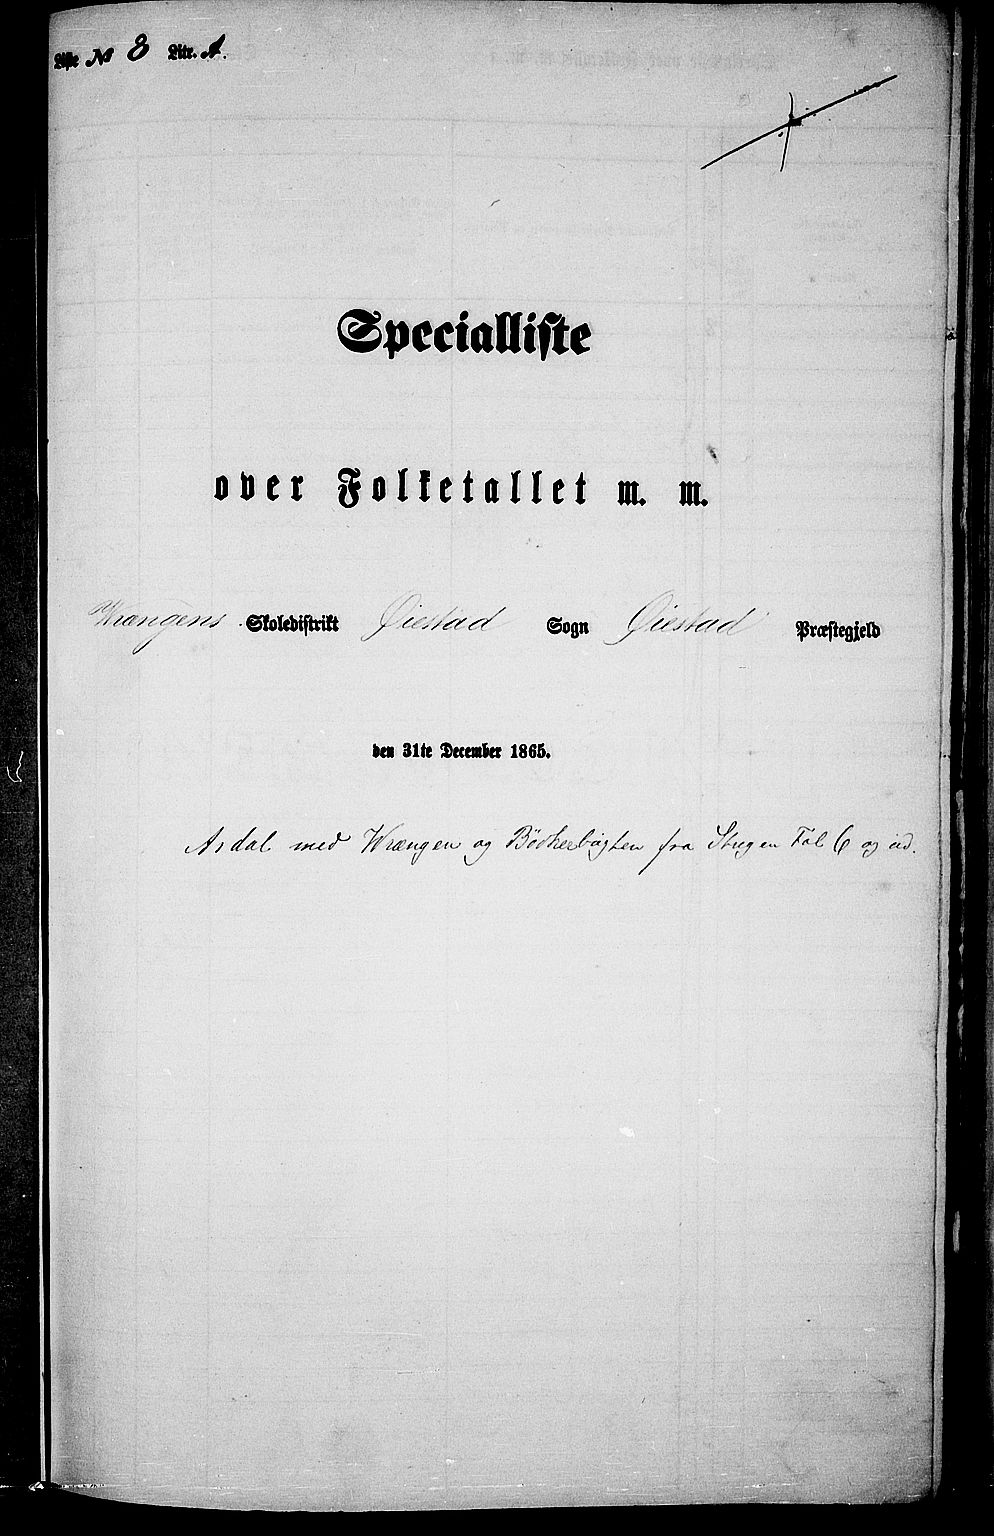 Liste № 8 Litr. A.
Specialliste
over Folketallet m. m.
Wrængens Skoledistrikt Øiestad Sogn Øiestad Præstegjeld
den 31te December 1865.
Asdal med Wrængen og Bødkerbugten fra Stugen Fol 6 og ud.